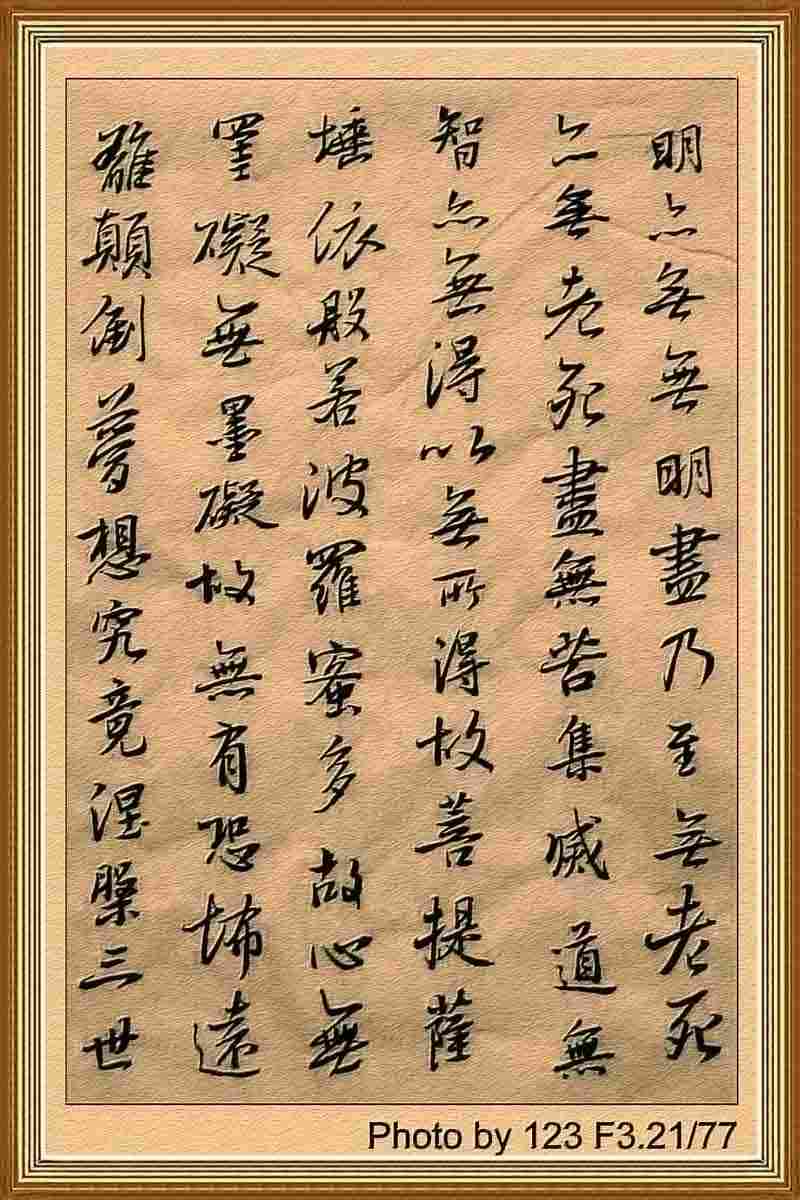 明亦無無明盡乃至無老死
亦無老死盡無苦集滅道無
智亦無得以無所得故菩提薩
埵依般若波羅蜜多故心無
罣礙無罣礙故無有恐怖遠
離顛倒夢想究竟涅槃三世
Photo by 123 F3.21/77